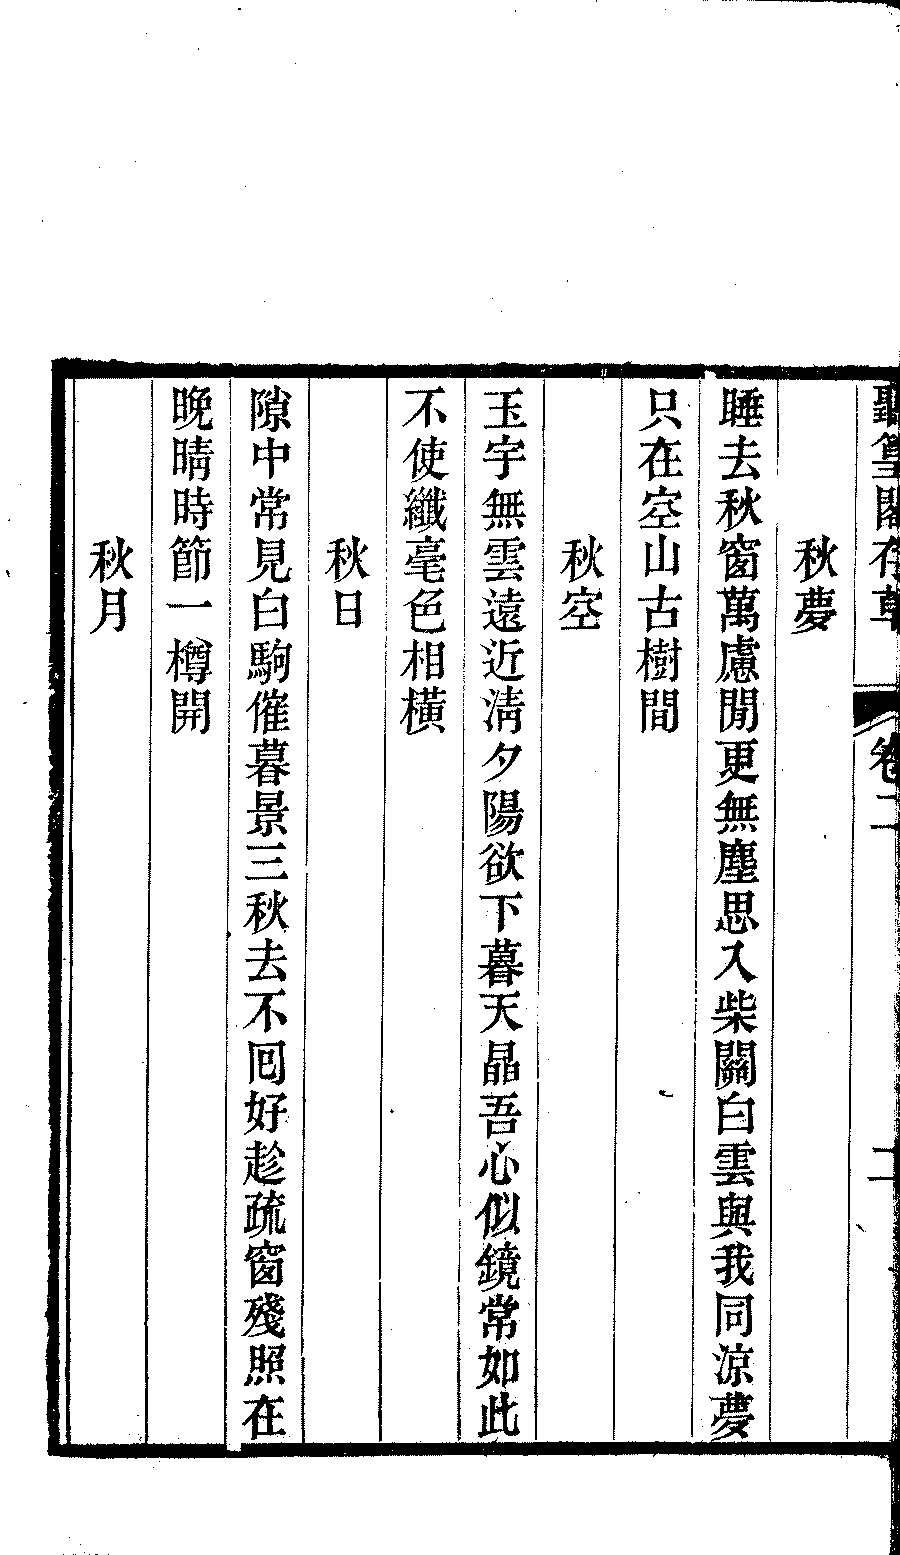 聽篁閣存草 卷二 二
秋夢
睡去秋窗萬慮閒更無塵思入柴關白雲與我同涼夢
只在空山古樹間
秋空
玉宇無雲遠近淸夕陽欲下暮天晶吾心似鏡常如此
不使纖毫色相橫
秋日
隙中常見白駒催暮景三秋去不囘好趁疏窗殘照在
晚晴時節一樽開
秋月